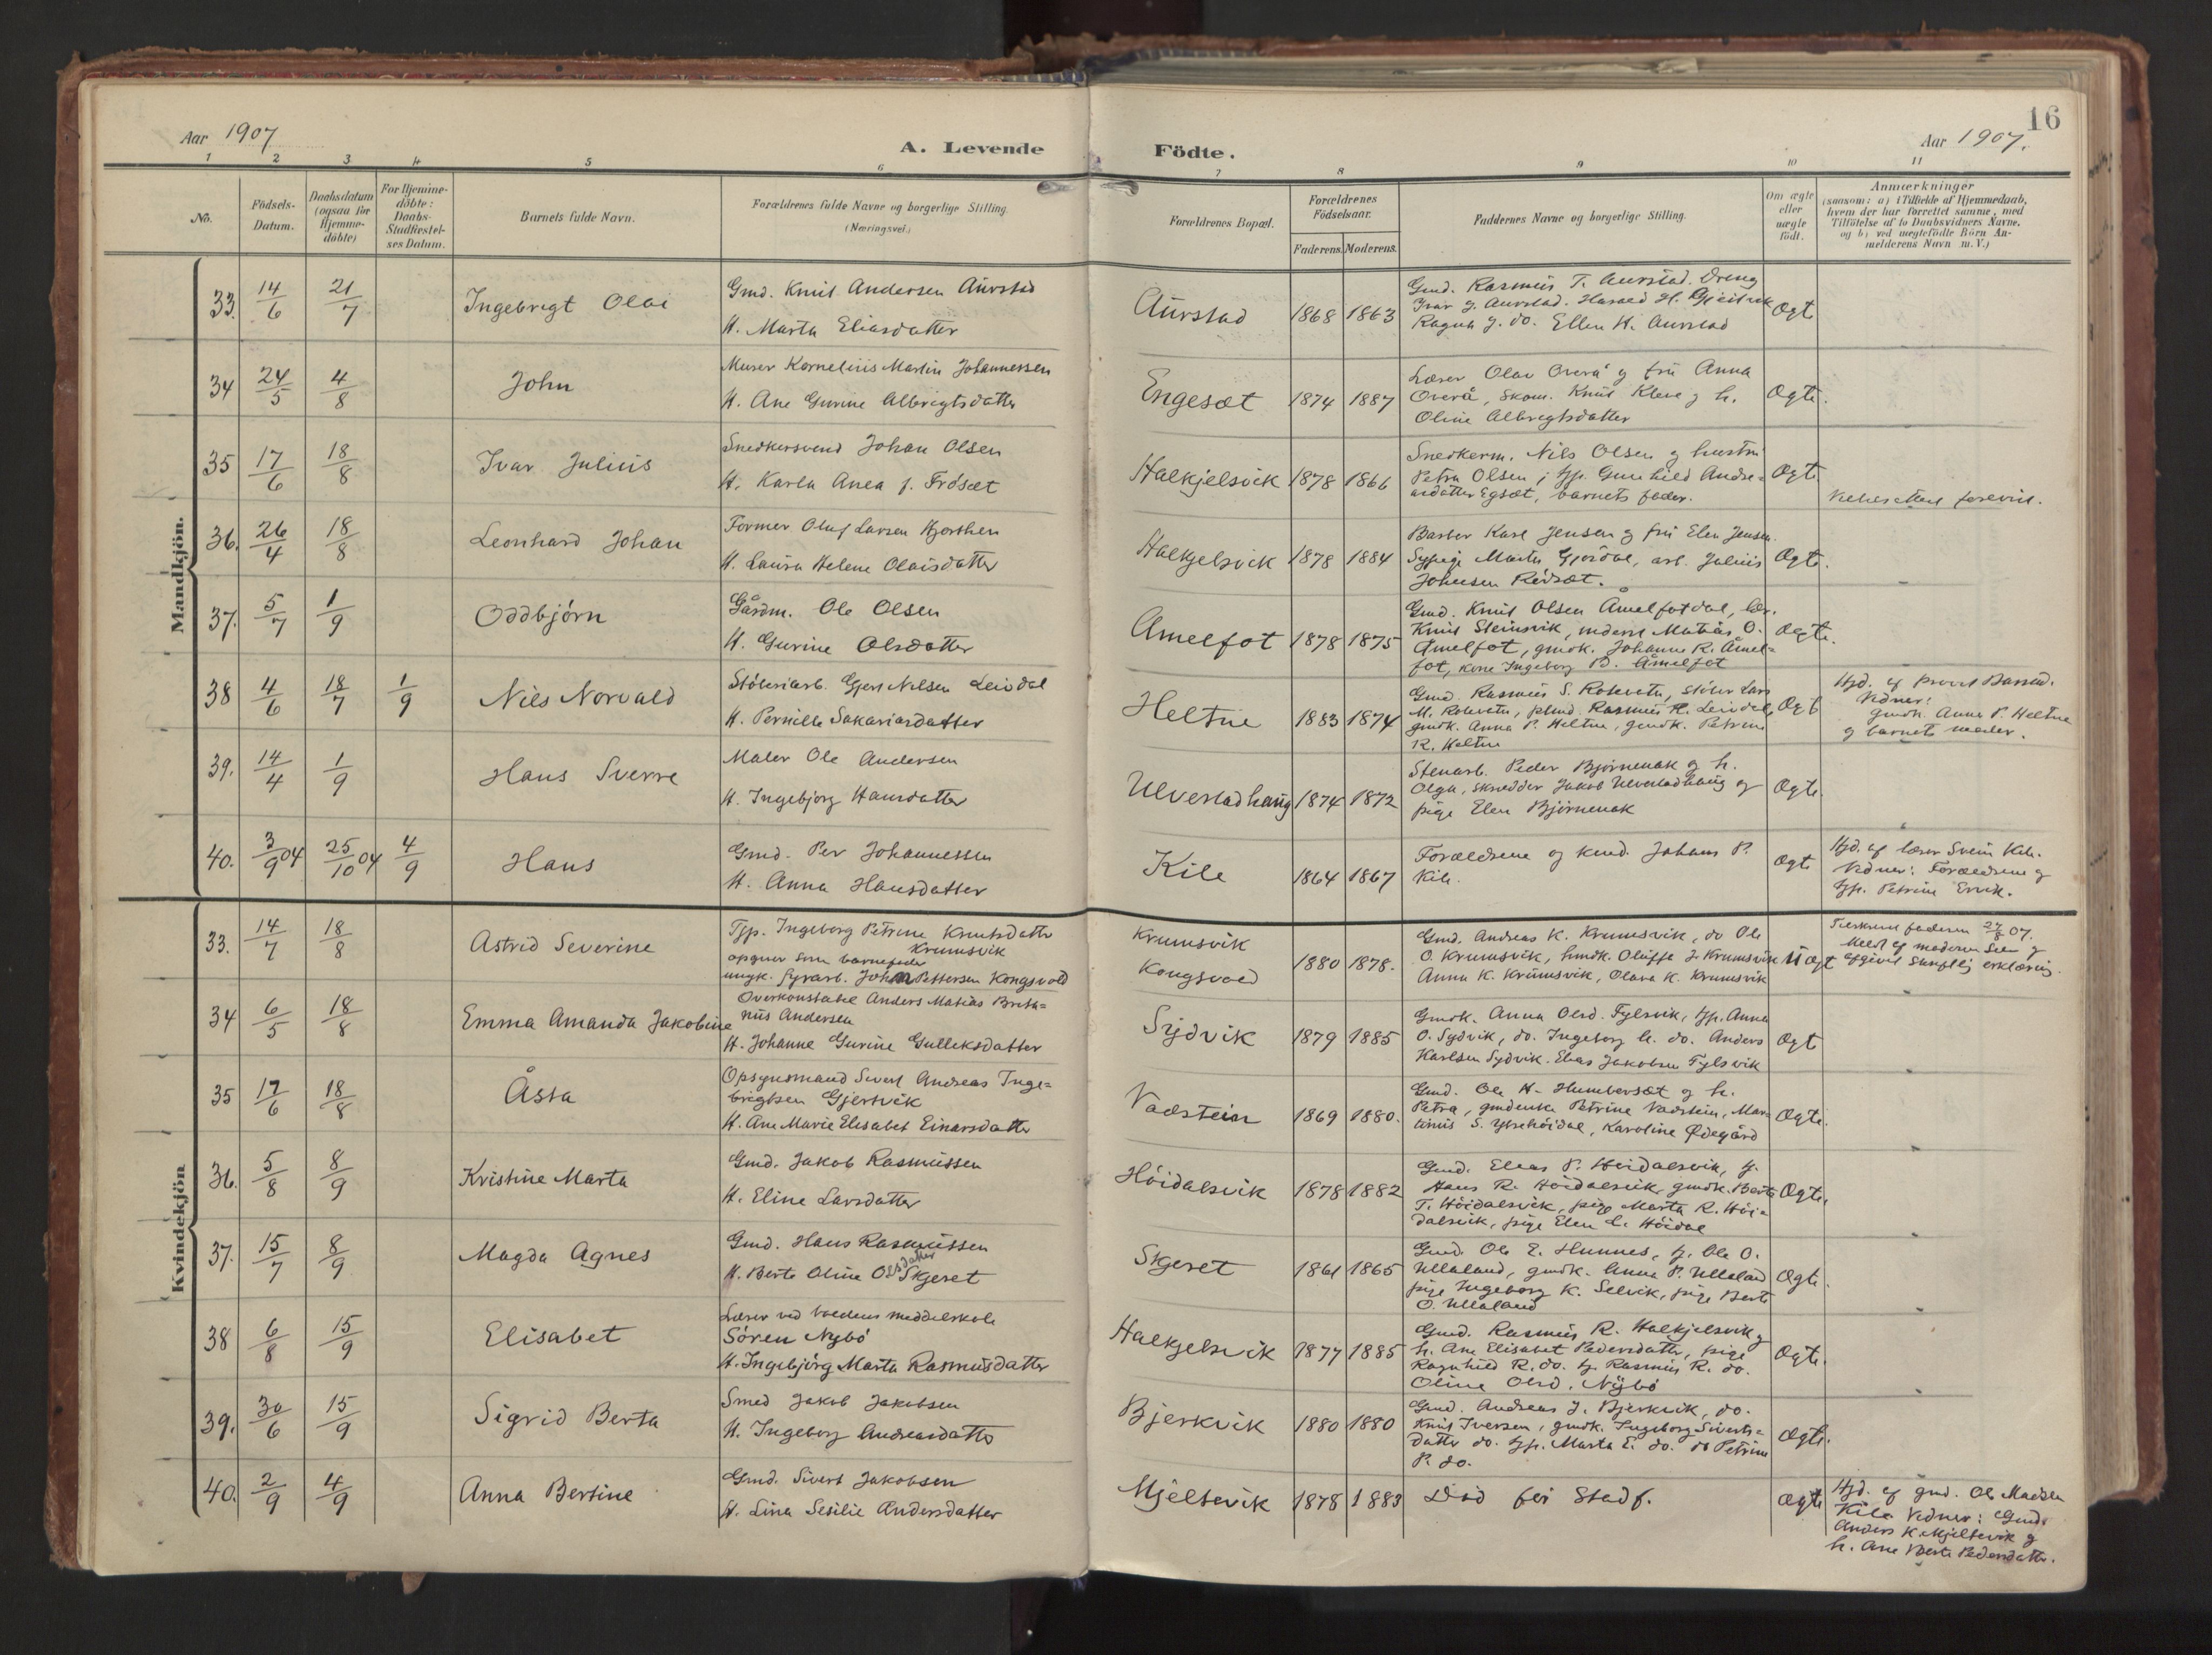 16
Aar 1907
A. Levende Födte.
Aar 1907.
1 2 3 4 5 6 7 8 9 10 11
No.
Födsels-Datum.
Daabsdatum (ogsaa for Hjemme-döbte)
For Hjemme-döbte: Daabs-Stadfæstel-ses Datum.
Barnets fulde Navn.
Forældrenes fulde Navne og borgerlige Stilling. (Næringsvei.)
Forældrenes Bopæl.
Forældrenes Födselsaar.
Faderens. Moderens.
Faddernes Navne og borgerlige Stilling.
Om ægte eller uægte födt.
Anmærkninger
(saasom: a) i Tilfælde af Hjemmedaab,
hvem der har forrettet samme, med
Tilföielse af to Daabsvidners Navne,
og b) ved uægtefödte Börn An-
melderens Navn m. V.)
Mandkjön.
33. 14/6 21/7 Ingebrigt Olai
Gmd. Knut Andersen Aurstad
H. Marta Eliasdatter
Aurstad 1868 1863
Gmd. Rasmus T. Aurstad. Dreng
Ivar J. Aurstad. Harald H.
Ragna J. do. Ellen H. Aurstad
Ægt
34 24/5 4/8 John
Murer Kornelius Martin Johannessen
H. Ane Gurine Albrigtsdatter
Engesæt 1874 1887
Lærer Olav Overå og fru Anna
Overå, Skom. Knut Kleve og h.
Oline Albregtsdatter
Ægte.
35 17/6 18/8 Ivar Julius
Snedkersvend Johan Olsen
H. Karla Anea f. Fröset
Halkjelsvik 1878 1866
Snedkerm. Nils Olsen og hustru
Petra Olsen, tjp. Gunhild Andre-
asdatter Egsæt, barnets fader.
Ægte
forevist.
36. 26/4 18/8 Leonhard Johan
Former Oluf Larsen Hjorthen
H. Laura Helene Olaisdatter
Halkjelsvik 1878 1884
Barber Karl Jensen og fru Elen Jensen.
Sypige Marta Gjördal, arb. Julius
Johnsen Rödsæt.
Ægte.
37. 5/7 1/9 Oddbjörn
Gårdm. Ole Olsen
H. Gurine Olsdatter
Åmelfot 1878 1875
Gmd. Knut Olsen Åmelfotdal, lær.
Knut Steinsvik, inderst Matias O.
Åmelfot, gmdk. Johanne R. Åmel-
fot, kone Ingeborg B. Åmelfot
Ægte.
38 4/6 18/7 1/9 Nils Norvald
Støberiarb. Gjert Nilsen Leivdal
H. Pernille Sakariasdatter
Heltne 1883 1874
Gmd. Rasmus S. Rotevatn, støber Lars
M. Rotevatn, Rasmus R. Leivdal,
gmdk. Anna P. Heltne, gmdk. Petrine
R. Heltne
Ægt
Hjd. af provst Barstad.
Vidner:
gmdk. Anna P. Heltne
og barnets moder.
39. 14/4 1/9 Hans Sverre
Maler Ole Andersen
H. Ingebjorg Hansdatter
Ulvestadhaug 1874 1872
Stenarb. Peder Björnenak og h.
Olga, skrædder Jakob Ulvestadhaug og
pige Elen Björnenak
Ægte.
40. 3/9 04 25/10 04 4/9 Hans
Gmd. Per Johannessen
H. Anna Hansdatter
Kile 1864 1867
Forældrene og kmd. Johans P.
Kile.
Ægt
Hjd. af lærer Svein Kile.
Vidner: Forældrene og
tjp. Petrine Ervik.
Kvindekjön
33. 14/7 18/8 Astrid Severine
Tjp. Ingeborg Petrine Knutsdatter
Krumsvik
opgiver som barnefader
ungk. fyrarb. John Pettersen Kongsvold
Krumsvik
Kongsvold
1880 1878.
Gmd. Andreas K. Krumsvik, do Ole
O. Krumsvik, hmdk. Oluffe J. Krumsvik
Anna K. Krumsvik, Olava K. Krumsvik
Uægt
faderen 27/8 07.
Meldt af moderen Selv og
afgivet erklæring.
34 6/5 18/8 Emma Amanda Jakobine
Overkonstabel Anders Matias Breta-
nus Andersen
H. Johanne Gurine Gulleksdatter
Sydvik 1879 1885
Gmdk. Anna Olsd. Fylsvik, tjp. Anna
O. Sydvik, do. Ingeborg h. do. Anders
Karlsen Sydvik. Elias Jakobsen Fylsvik
Ægt
35 17/6 18/8 Åsta
Opsynsmand Sivert Andreas Inge-
brigtsen Gjertvik
H. Ane Marie Elisabet Einarsdatter
Vadstein 1869 1880.
Gmd. Ole H. Humbersæt og h.
Petra, gmdenke Petrine Vadstein, Mar-
tinus S. Ytrehöidal, Karoline Ødegård
Ægte.
36. 5/8 8/9 Kristine Marta
Gmd. Jakob Rasmussen
H. Eline Larsdatter
Höidalsvik 1878 1882
Gmd. Elias P. Höidalsvik, g.
Hans R. Höidalsvik, gmdk. Berte
T. Höidalsvik, pige Marta R. Höi-
dalsvik, pige Elen L. Höidal
Ægte.
37. 15/7 8/9 Magda Agnes
Gmd. Hans Rasmussen
H. Berte Oline Olsdatter Skjeret
Skjeret 1861 1865
Gmd. Ole E. Hunnes, g. Ole O.
Ullaland, gmdk. Anna P. Ullaland
pige Ingeborg K. Selvik, pige Berte
O. Ullaland
Ægte.
38 6/8 15/9 Elisabet
Lærer ved Voldens middelskole
Sören Nybö
H. Ingebjörg Marta Rasmusdatter
Halkjelsvik 1877 1885
Gmd. Rasmus R. Halkjelsvik og
h. Ane Elisabet Pedersdatter, pige
Ragnhild R. do. g. Rasmus R. do.
Oline Olsd. Nybö
Ægte.
39. 30/6 15/9 Sigrid Berta
Smed Jakob Jakobsen
H. Ingeborg Andreasdatter
Bjerkvik 1880 1880
Gmd. Andreas J. Bjerkvik, do.
Knut Iversen, gmdk. Ingeborg Siverts-
datter do. tjp. Marta E. do. do Petrine
P. do.
Ægte.
40. 2/9 4/9 Anna Bertine
Gmd. Sivert Jakobsen
H. Lina Sesilie Andersdatter
Mjeltevik 1878 1883
Död för Stadf.
Ægte
Hjd. af gmd. Ole Madsen
Kile Vidner: Gmd.
Anders K. Mjeltevik og
h. Ane Berte Pedersdatter.